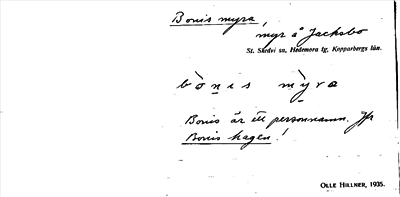 Bonis myra,
myr å Jacksbo
St. Skedvi sn, Hedemora tg, Kopparbergs län.
bò̱nıs mỳ̱ra
Bonis är ett personnamn. Jfr
Bonis hagen!
OLLE HILLNER, 1935.